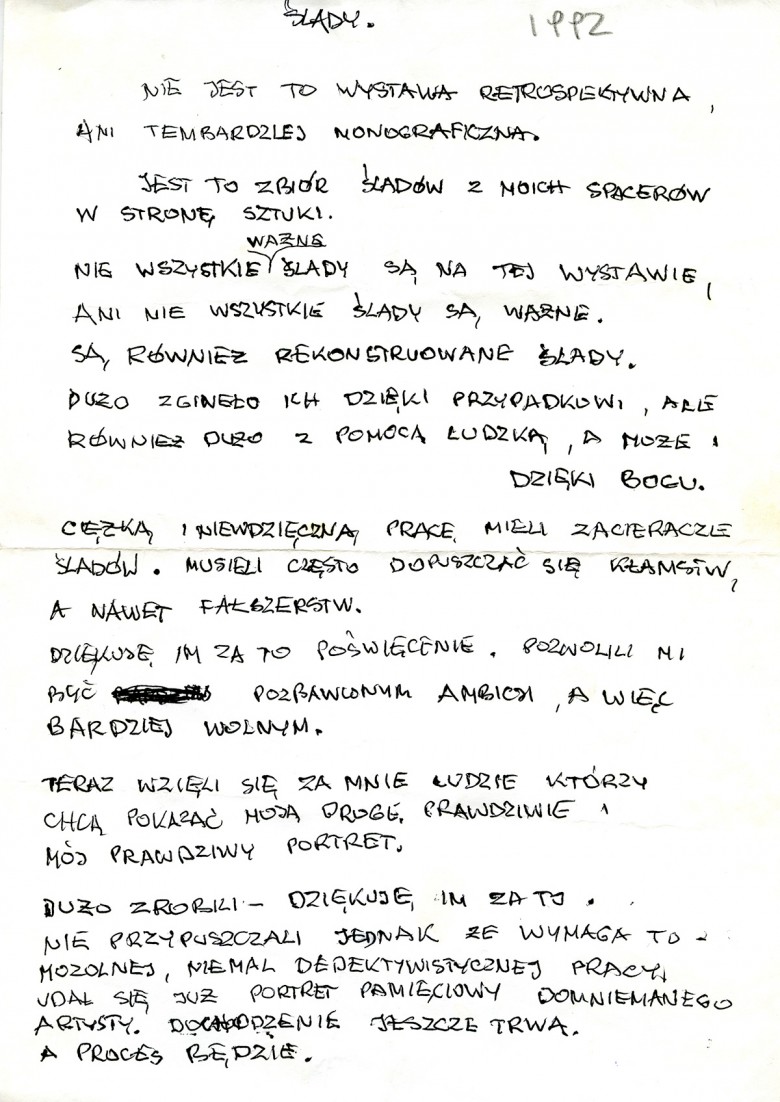 ŚLADY. 1992
NIE JEST TO WYSTAWA RETROSPEKTYWNA,
ANI TEMBARDZIEJ MONOGRAFICZNA.
JEST TO ZBIÓR ŚLADÓW Z MOICH SPACERÓW
W STRONĘ SZTUKI.
WAŻNE
NIE WSZYSTKIE ŚLADY SĄ NA TEJ WYSTAWIE,
ANI NIE WSZYSTKIE ŚLADY SĄ WAŻNE.
SĄ RÓWNIEŻ REKONSTRUOWANE ŚLADY.
DUŻO ZGINEŁO ICH DZIĘKI PRZYPADKOWI, ALE
RÓWNIEŻ DUŻO Z POMOCĄ LUDZKĄ, A MOŻE I
DZIĘKI BOGU.
CIĘŻKĄ I NIEWDZIĘCZNĄ PRACĘ MIELI ZACIERACZE
ŚLADÓW. MUSIELI CZĘSTO DOPUSZCZAĆ SIĘ KŁAMSTW,
A NAWET FAŁSZERSTW.
DZIĘKUJĘ IM ZA TO POŚWIĘCENIE. POZWOLILI MI
BYĆ POZBAWIONYM AMBICJI, A WIĘC
BARDZIEJ WOLNYM.
TERAZ WZIĘLI SIĘ ZA MNIE LUDZIE KTÓRZY
CHCĄ POKAZAĆ MOJĄ DROGĘ PRAWDZIWIE I
MÓJ PRAWDZIWY PORTRET.
DUŻO ZROBILI – DZIĘKUJĘ IM ZA TO.
NIE PRZYPUSZCZALI JEDNAK ŻE WYMAGA TO –
MOZOLNEJ, NIEMAL DEDEKTYWISTYCZNEJ PRACY,
UDAŁ SIĘ JUŻ PORTRET PAMIĘCIOWY DOMNIEMANEGO
ARTYSTY. DOCHODZENIE JESZCZE TRWA.
A PROCES BĘDZIE.